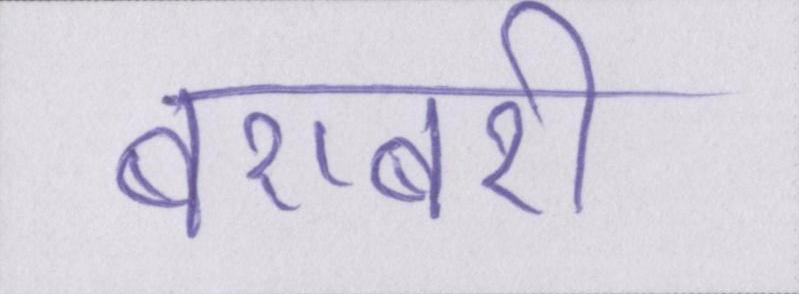 बराबरी